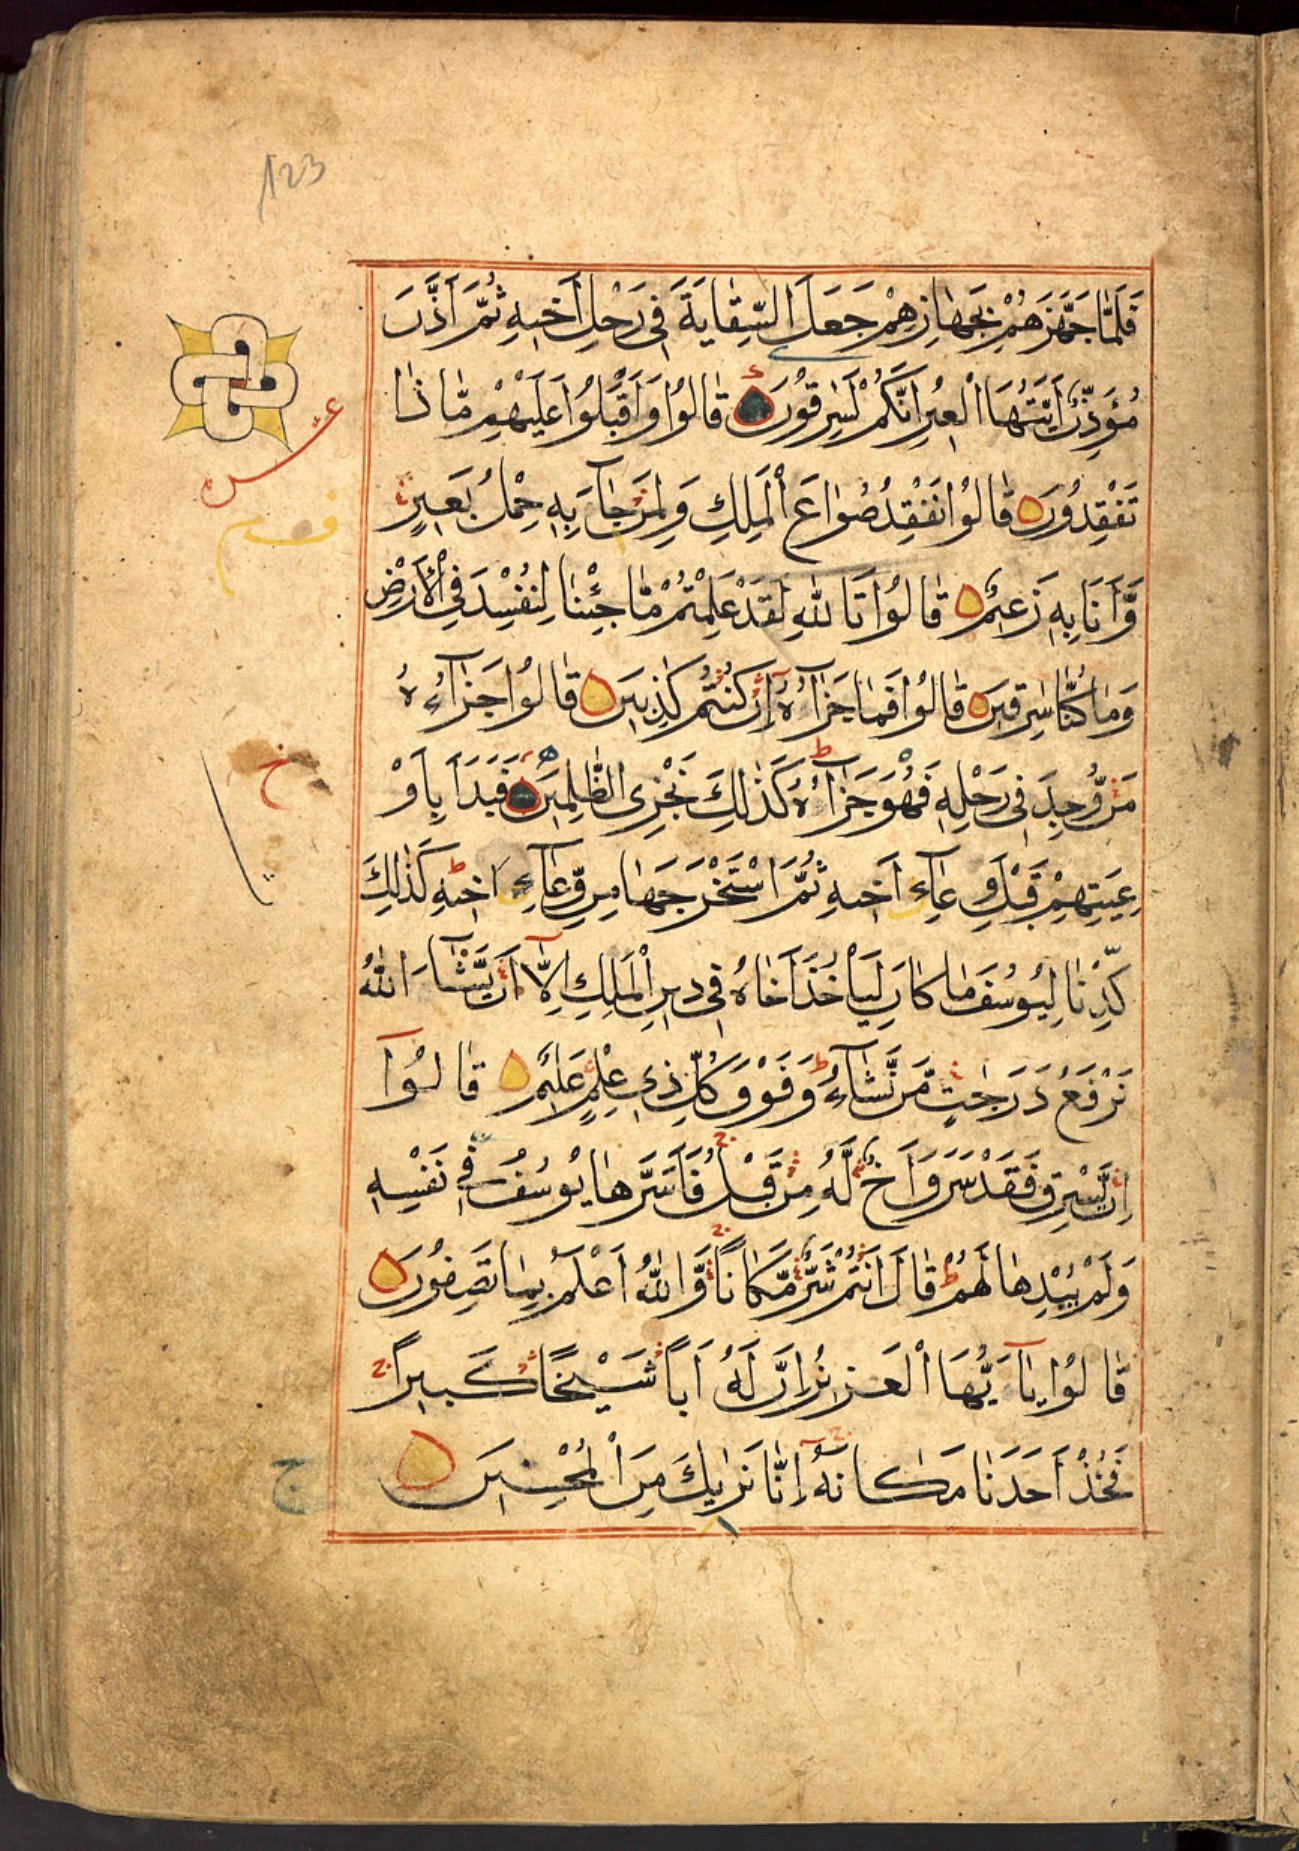 123
فَلَمَّا جَهَّزَهُمْ بِجَهَازِهِمْ جَعَلَ السِّقَايَةَ فِى رَحْلِ اَخِيهِ ثُمَّ اَذَّنَ
مُؤَذِّنٌ اَيَّتُهَا الْعِيرُ اِنَّكُمْ لَسٰرِقُونَ قَالُوا وَاَقْبَلُوا عَلَيْهِمْ مَّا ذَا
تَفْقِدُونَ قَالُوا نَفْقِدُ صُوَاعَ الْمَلِكِ وَلِمَنْ جَآءَ بِهِ حِمْلُ بَعِيرٍ
وَّاَنَا بِهِ زَعِيمٌ قَالُوا تَا للّٰهِ لَقَدْ عَلِمْتُمْ مَّا جِئْنَا لِنُفْسِدَ فِى الْاَرْضِ
وَمَا كُنَّا سٰرِقِينَ قَالُوا فَمَا جَزَآؤُهُ اِنْ كُنْتُمْ كٰذِبِينَ قَالُوا جَزَآءُهُ
مَنْ وُّجِدَ فِى رَحْلِهِ فَهُوَ جَزَآؤُهُ كَذٰلِكَ نَجْزِى الظّٰلِمِينَ فَبَدَاَ بِاَوْ
عِيَتِهِمْ قَبْلَ وِعَآءِ اَخِيهِ ثُمَّ اسْتَخْرَجَهَا مِنْ وِّعَآءِ اَخِيهِ كَذٰلِكَ
كِدْنَا لِيُوسُفَ مَا كَانَ لِيَاْخُذَ اَخَاهُ فِى دِينِ الْمَلِكِ اِلَّا اَنْ يَّشَآءَ اللّٰهُ
نَرْفَعُ دَرَجٰتٍ مَّنْ نَّشَآءُ وَفَوْقَ كُلِّ ذِى عِلْمٍ عَلِيمٌ قَالُوآ
اِنْ يَّسْرِقْ فَقَدْ سَرَقَ اَخٌ لَّهُ مِنْ قَبْلُ فَاَسَرَّهَا يُوسُفُ فِى نَفْسِهِ
وَلَمْ يُبْدِهَا لَهُمْ قَالَ اَنْتُمْ شَرٌّ مَّكَانًا وَّاللّٰهُ اَعْلَمُ بِمَا تَصِفُونَ
قَالُوا يَآ اَيُّهَا الْعَزِيزُ اِنَّ لَهُ اَبًا شَيْخًا كَبِيرًا
فَخُذْ اَحَدَنَا مَكَانَهُ اِنَّا نَرٰيكَ مِنَ الْمُحْسِنِينَ
عشر
ح
ج